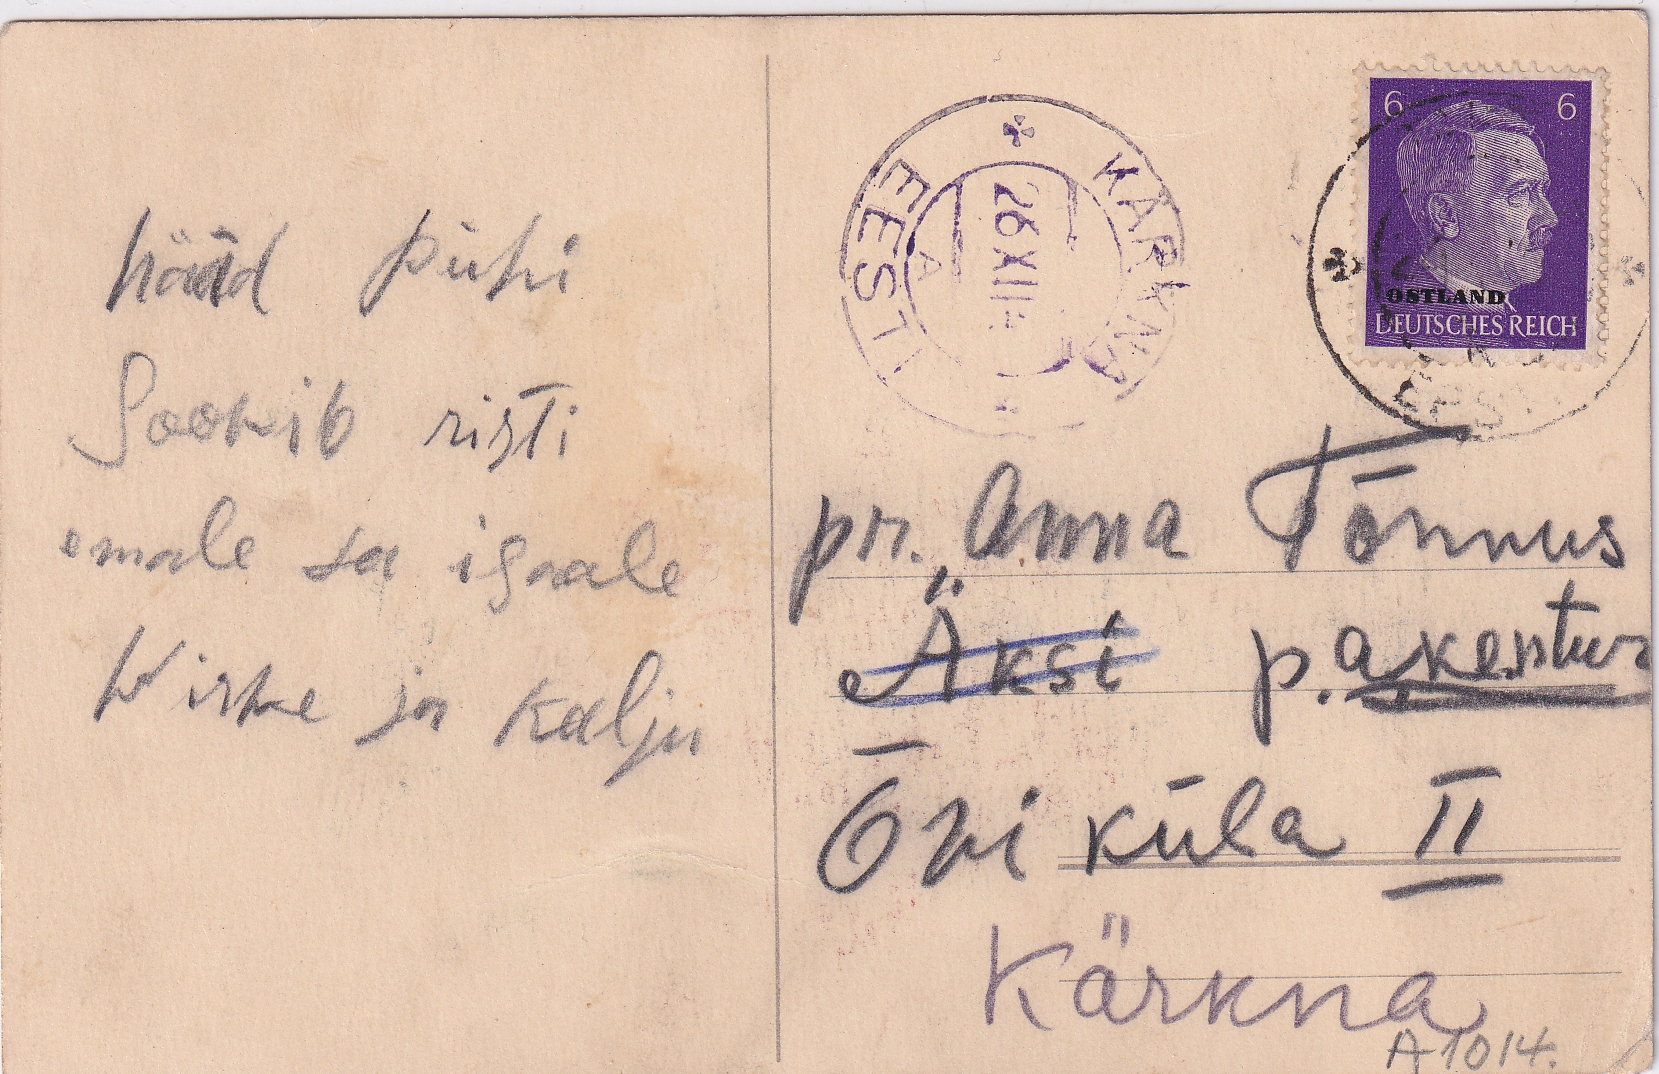 hääd pühi
Soovib risti
emale ja isale
Kirke ja Kalju
KÄRKNA
EESTI
26 XII
A
6 6
OSTLAND
DEUTSCHES REICH
EESTI
pr. Anna Tõnnus
Äksi p. agentuur
Õvi küla II
Kärkna
A1014.